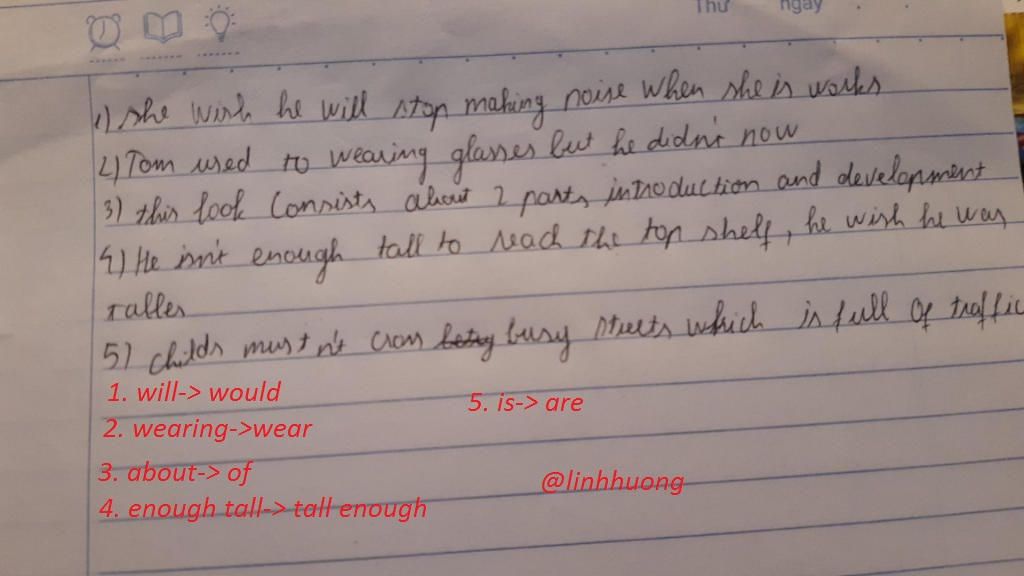 Thứ ngày
1) she wish he will stop making noise when she is works
2) Tom used to wearing glasses but he didn't now
3) this look Consists about 2 parts, introduction and development
4) He isn't enough tall to reach the top shelf, he wish he was
taller
5) childs mustn't cross busy streets which is full of traffic
1. will-> would
5. is-> are
2. wearing->wear
3. about-> of
@linhhuong
4. enough tall-> tall enough